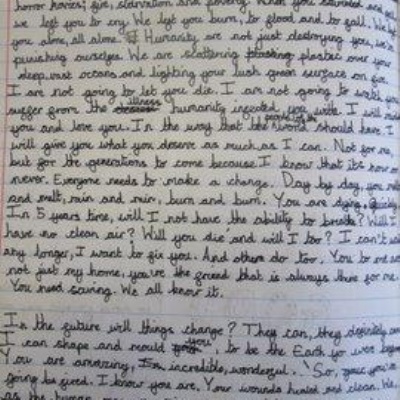 horror homes; fire, starvation and poverty. When you
we left you to cry. We left you burn, to flood and to fall. We left
you alone, all alone. Humanity are not just destroying you, we're
punishing ourselves. We are scattering plastic over your
deep, vast oceans and lighting your lush green surface on fire.
I are not going to let you die. I am not going to watch you
suffer from the illness humanity injected you with. I will
you and love you. In the way that the world should have. I
will give you what you deserve as much as I can. Not for me,
but for the generations to come because I know that it's now or
never. Everyone needs to make a change. Day by day, you melt
and melt, ruin and ruin, burn and burn. You are dying, quickly.
In 5 years time, will I not have the ability to breathe? Will I
have no clean air? Will you die and will I too? I can't
any longer, I want to fix you. And others do too. You to me are
not just my home, you're the friend that is always there for me.
You need saving. We all know it.
In the future will things change? They can, they definitely can
I can shape and mould you, to be the Earth you were
You are amazing, incredible, wonderful. So,
going be fixed. I know you are. Your wounds healed and clean. We,
as the human